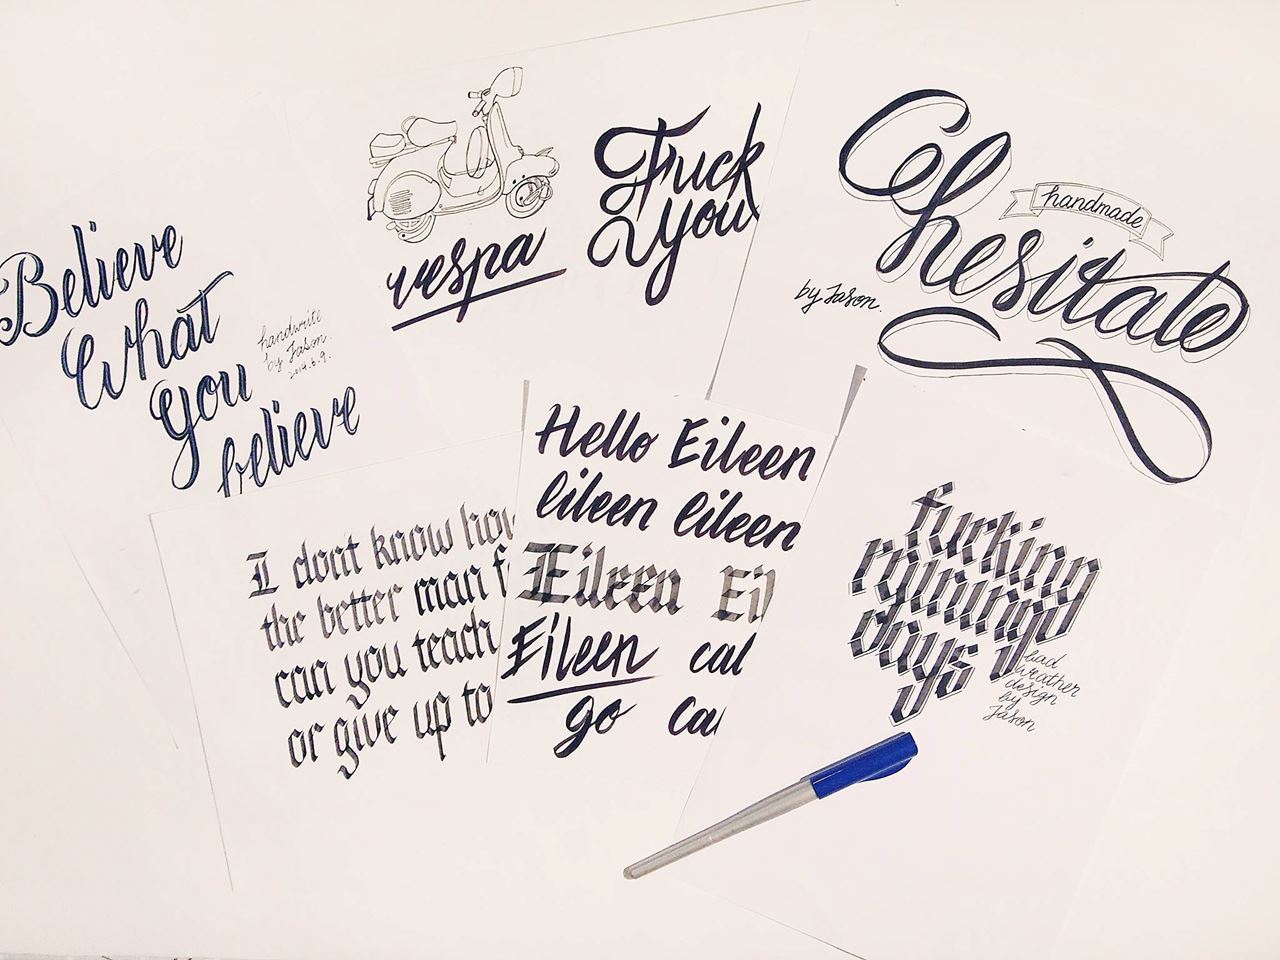 Believe
What
you
believe
handwrite
by Jason.
2014.6.9.
vespa
Fuck
you
handmade
hesitate
by Jason.
I dont know how
the better man f
can you teach
or give up to
Hello Eileen
Eileen Eileen
Eileen Eil
Eileen cal
go cal
fucking
raining
days
bad
weather
design
by
Jason